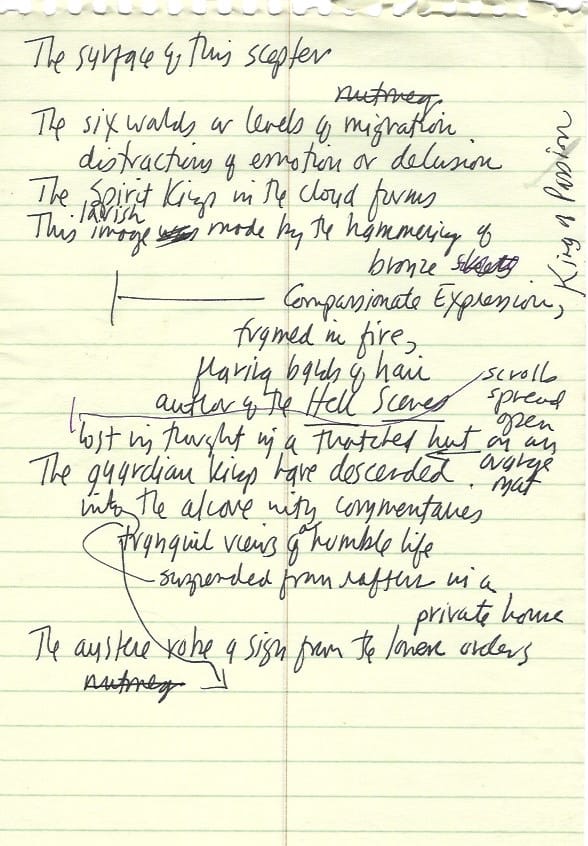 The surface of this scepter
nutmeg
The six worlds or levels of migration
distractions of emotion or delusion
The Spirit Kings in the cloud forms
lavish
This image was made by the hammering of
bronze sheets
King of Passion
Compassionate Expression,
framed in fire,
flaring bands of hair
author of the Hell Scenes
scrolls
spread
open
on an
orange
mat
lost in thought in a thatched hut
The guardian kings have descended
into the alcove with commentaries
tranquil views of a humble life
suspended from rafters in a
private home
The austere robe a sign from the lower orders
nutmeg